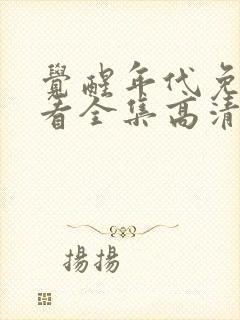 覺醒年代免
看全集高清
揚揚